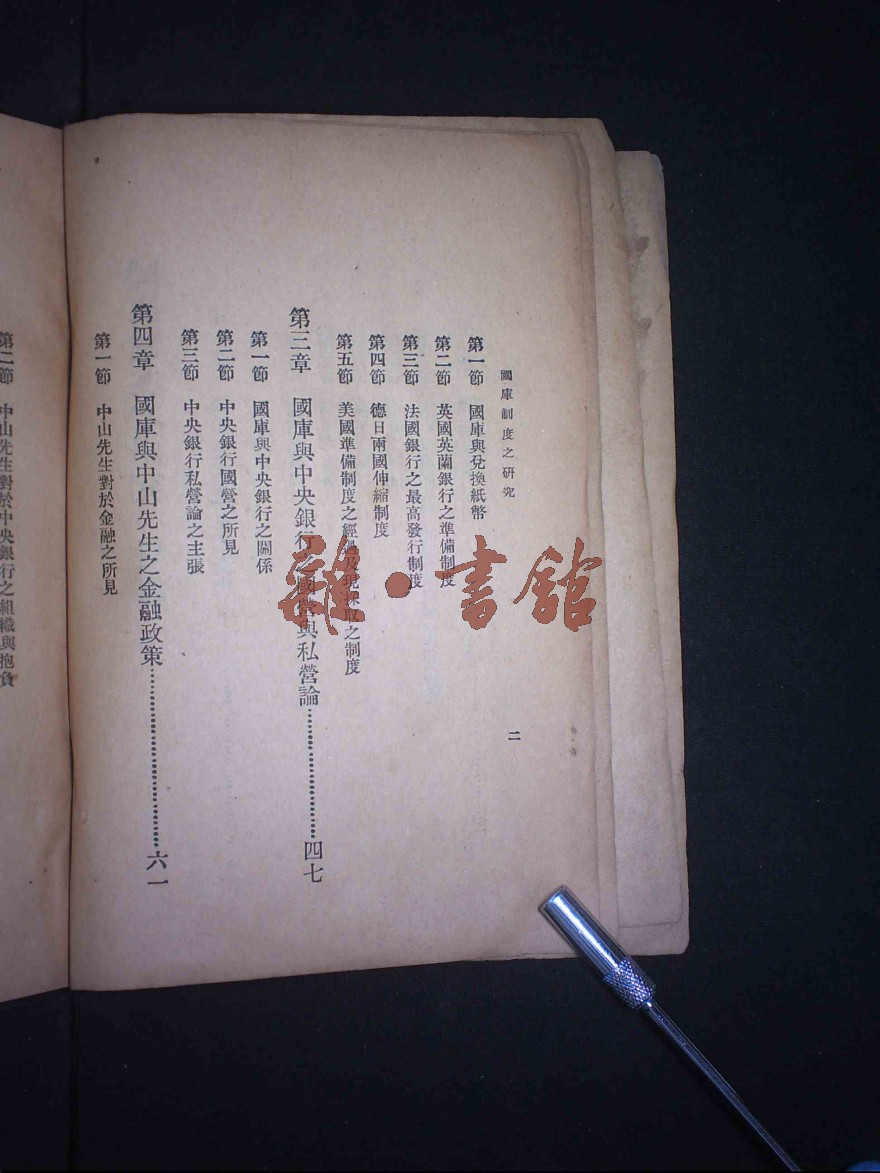 國庫制度之研究
二
第一節 國庫與兌換紙幣
第二節 英國英蘭銀行之準備制度
第三節 法國銀行之最高發行制度
第四節 德日兩國伸縮制度
第五節 美國準備制度之經過及現採取之制度
第三章 國庫與中央銀行之國營與私營論……………………四七
第一節 國庫與中央銀行之關係
第二節 中央銀行國營之所見
第三節 中央銀行私營論之主張
第四章 國庫與中山先生之金融政策……………………六一
第一節 中山先生對於金融之所見
第二節 中山先生對於中央銀行之組織與抱負
雜·書館